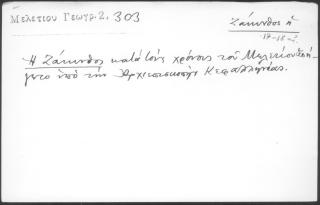 Μελετίου Γεωγρ. 2, 303
Ζάκυνθος ἡ
17-18-2.
Ἡ Ζάκυνθος κατὰ τοὺς χρόνους τοῦ Μελετίου
γετο ὑπὸ τὴν Ἀρχιεπισκοπὴν Κεφαλληνίας.